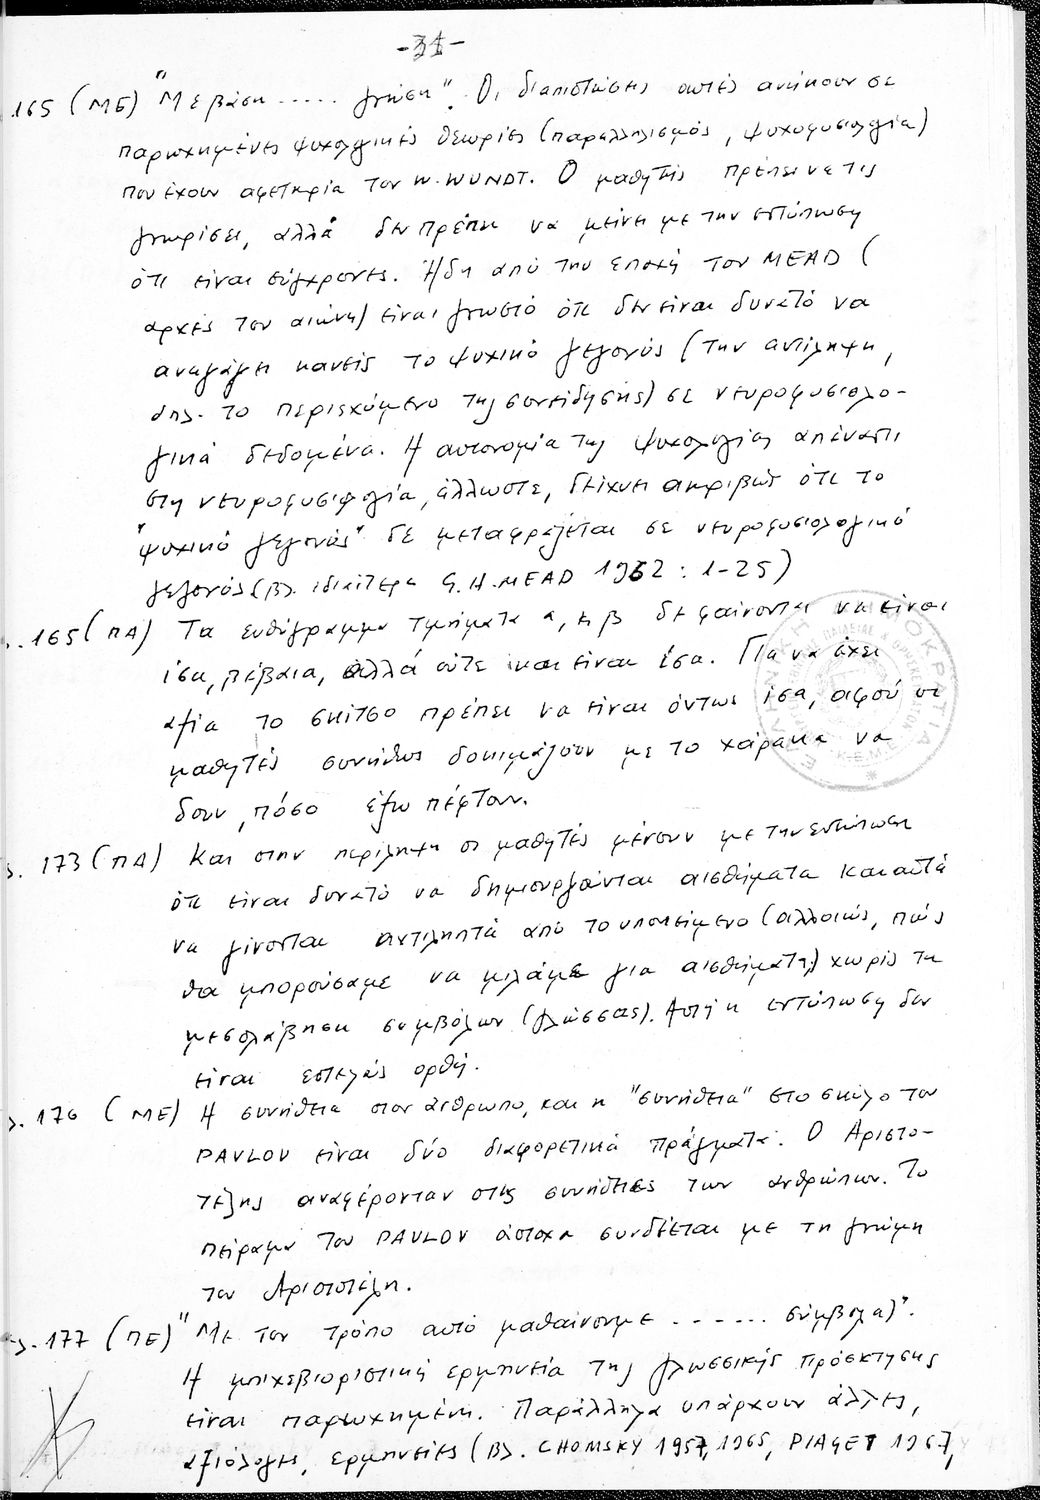 -31-
165 (ΜΕ) "Με βάση ..... γνώση". Οι διαπιστώσεις αυτές ανήκουν σε
παρωχημένες ψυχολογικές θεωρίες (παραλληλισμός, ψυχοφυσιολογία)
που έχουν αφετηρία τον W. WUNDT. Ο μαθητής πρέπει να τις
γνωρίσει, αλλά δεν πρέπει να μείνει με την εντύπωση
ότι είναι σύγχρονες. Ήδη από την εποχή του MEAD (
αρχές του αιώνα) είναι γνωστό ότι δεν είναι δυνατό να
αναγάγει κανείς το ψυχικό γεγονός (την αντίληψη,
δηλ. το περιεχόμενο της συνείδησης) σε νευροφυσιολο-
γικά δεδομένα. Η αυτονομία της ψυχολογίας απέναντι
στη νευροφυσιολογία, άλλωστε, δείχνει ακριβώς ότι το
"ψυχικό γεγονός" δε μεταφράζεται σε νευροφυσιολογικό
γεγονός (βλ. ιδιαίτερα G.H. MEAD 1962: 1-25)
165 (ΠΑ) Τα ευθύγραμμα τμήματα α, κ β δε φαίνονται να είναι
ίσα, βέβαια, αλλά ούτε και είναι ίσα. Για να έχει
αξία το σκίτσο πρέπει να είναι όντως ίσα, αφού οι
μαθητές συνήθως δοκιμάζουν με το χάρακα να
δουν, πόσο έξω πέφτουν.
ΕΛΛΗΝΙΚΗ ΔΗΜΟΚΡΑΤΙΑ
Κ.Ε.Μ.Ε.
173 (ΠΑ) Και στην περίληψη οι μαθητές μένουν με την εντύπωση
ότι είναι δυνατό να δημιουργούνται αισθήματα και αυτά
να γίνονται αντιληπτά από το υποκείμενο (αλλοιώς, πώς
θα μπορούσαμε να μιλάμε για αισθήματα;) χωρίς τη
μεσολάβηση συμβόλων (γλώσσας). Αυτή η εντύπωση δεν
είναι εντελώς ορθή.
176 (ΜΕ) Η συνήθεια στον άνθρωπο, και η "συνήθεια" στο σκύλο του
PAVLOV είναι δύο διαφορετικά πράγματα. Ο Αριστο-
τέλης αναφέρονταν στις συνήθειες των ανθρώπων. Το
πείραμα του PAVLOV άστοχα συνδέεται με τη γνώμη
του Αριστοτέλη.
177 (ΠΕ) "Με τον τρόπο αυτό μαθαίνουμε ....... σύμβολα)".
Η μπιχεβιοριστική ερμηνεία της γλωσσικής πρόσκτησης
είναι παρωχημένη. Παράλληλα υπάρχουν άλλες,
αξιόλογες, ερμηνείες (βλ. CHOMSKY 1957, 1965, PIAGET 1967,